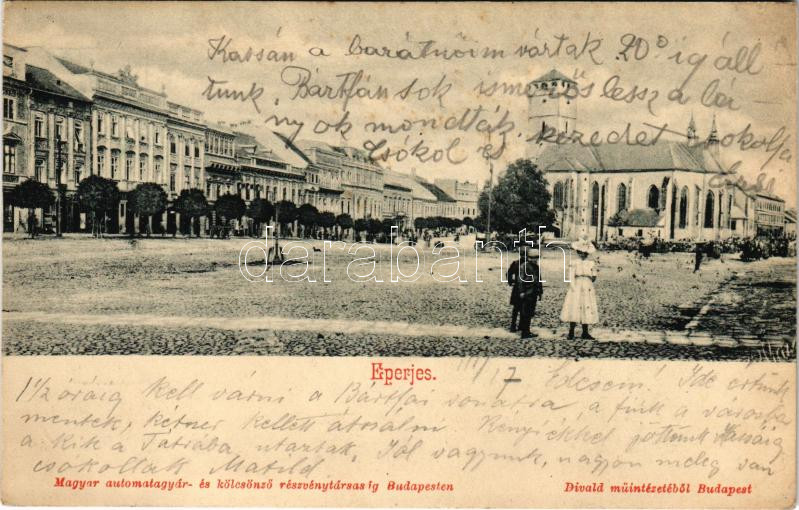 Kassán a barátnőim vártak 20° ig áll
tunk. Bártfán sok ismerős lessz a lá
nyok mondták. kezedet csókolja
Csókol és
darabanth.com
Eperjes.
VIII/17 Edesem! Ide értünk
1 1/2 óráig kell várni a Bártfai vonatra, a fiúk a városba
mentek, kétszer kellett átszálni Kenyiékkel jöttünk Kassáig
a kik a Tátrába utaztak. Jól vagyunk, nagyon meleg van
csókollak Matild
Magyar automatagyár- és kölcsönző részvénytársaság Budapesten
Divald müintézetéből Budapest